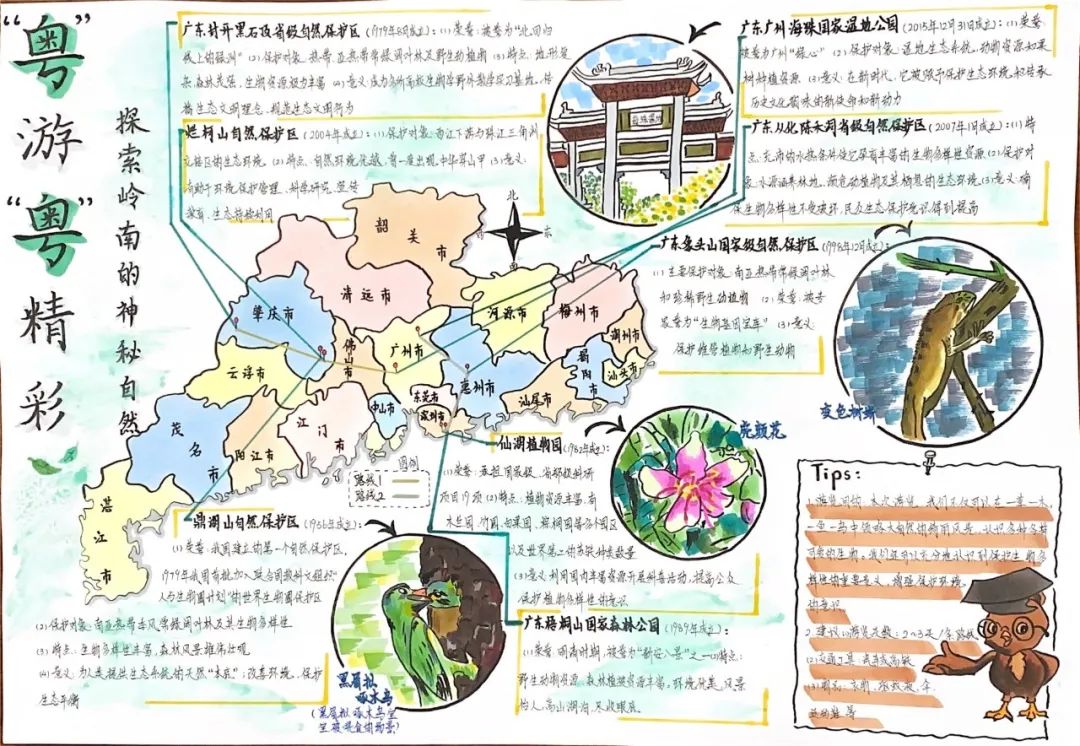 “粤”游“粤”精彩
探索岭南的神秘自然
广东封开黑石顶省级自然保护区(1979年8月成立):(1)荣誉:被誉为“北回归
线上的绿洲”(2)保护对象:热带、亚热带常绿阔叶林及野生动植物(3)特点:地形复
杂,森林茂密,生物资源极为丰富(4)意义:成为多所高校生物等野外教学实习基地,传
播生态文明理念,规范生态文明行为
烂柯山自然保护区(2004年成立):(1)保护对象:西江下游与珠江三角洲
交接区的生态环境(2)特点:自然环境优越,有一度出现,中华穿山甲(3)意义:
有助于环境保护管理、科学研究、宣传
教育、生态持续利用
广东广州海珠国家湿地公园(2015年12月31日成立):(1)荣誉:
被誉为广州“绿心”(2)保护对象:湿地生态系统、动物资源、如果
树种植资源(3)意义:在新时代,它被赋予保护生态环境,和传承
历史文化韵味的新使命和新动力
广东从化陈禾洞省级自然保护区(2007年1月成立):(1)特
点:充沛的水热条件使它孕育丰富的生物多样性资源(2)保护对
象:水源涵养林地、濒危动植物及其栖息的生态环境(3)意义:确
保生物多样性不受破坏,民众生态保护意识得到提高
广东象头山国家级自然保护区(1998年12月成立):
(1)主要保护对象:南亚热带常绿阔叶林
和珍稀野生动植物(2)荣誉:被誉
为“生物基因宝库”(3)意义:
保护维管植物和野生动物
海珠湿地
北
东
南
西
韶关市
清远市
肇庆市
河源市
梅州市
潮州市
广州市
佛山市
云浮市
惠州市
揭阳市
汕头市
汕尾市
东莞市
深圳市
中山市
江门市
茂名市
阳江市
湛江市
图例
路线1
路线2
变色树蜥
亮颠花
仙湖植物园(1982年成立):
(1)荣誉:承担国家级、省部级科研
项目19项(2)特点:植物资源丰富,有
木兰园、竹园、如果园、梧桐园等多个园区
以及世界第一的苏铁种类数量
(3)意义:利用园内丰富资源开展科普活动,提高公众
保护植物多样性的意识
鼎湖山自然保护区(1956年成立):
(1)荣誉:我国建立的第一个自然保护区,
1979年我国首批加入联合国教科文组织“
人与生物圈计划”的世界生物圈保护区
(2)保护对象:南亚热带季风常绿阔叶林及其生物多样性
(3)特点:生物多样性丰富,森林风景雄伟壮观
(4)意义:为人类提供生态系统的天然“本底”;改善环境,保护
生态平衡
黑眉拟啄木鸟
(黑眉拟啄木鸟宝宝被投食的场景)
广东梧桐山国家森林公园(1989年成立):
(1)荣誉:明清时期,被誉为“新安八景”之一(2)特点:
野生动物资源、森林植被资源丰富,环境优美,风景
怡人,高山湖泊,尽收眼底。
Tips:
1.游览目的:本次游览,我们不仅可以在一草一木、
一鱼一鸟中领略大自然的绮丽风景,认识各种各样
可爱的生物,我们还可以充分地认识到保护生物多
样性的重要意义,增强保护环境
的意识
2.建议:(1)游览天数:2~3天/条路线
(2)交通工具:汽车或高铁
(3)